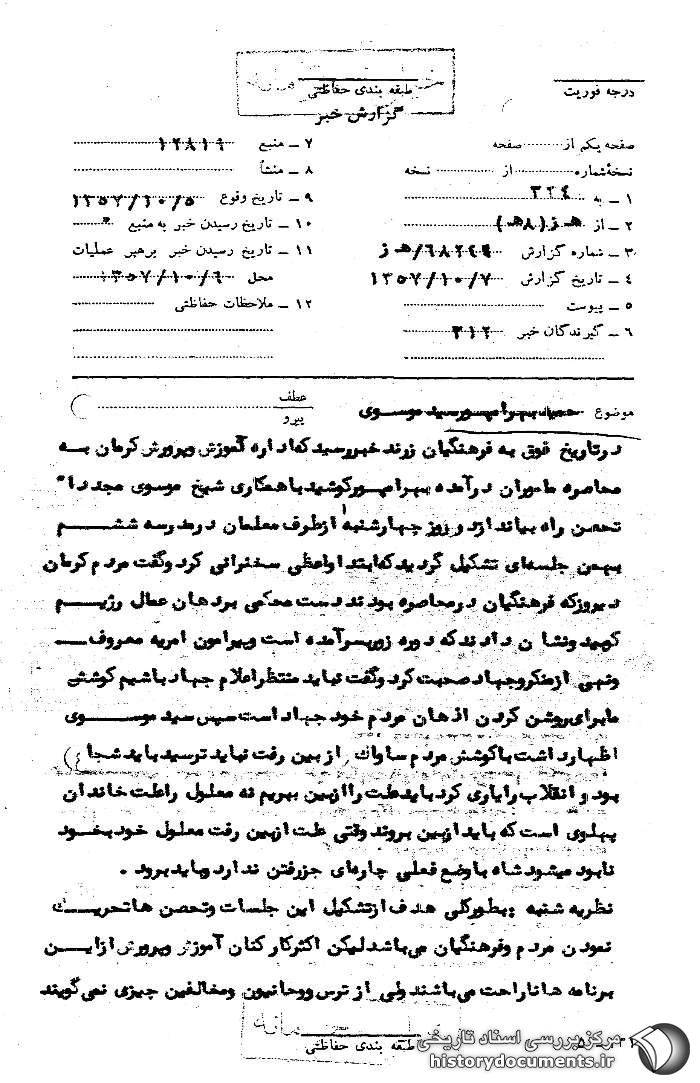 طبقه بندی حفاظتی
درجه فوریت
گزارش خبر
صفحه یکم از ............ صفحه
نسخهٔ شماره ............ از ............ نسخه
۱ ـ به ۳۲۴
۲ ـ از هـ ز (۸هـ)
۳ ـ شماره گزارش ۶۸۲۴۹/هـ ز
۴ ـ تاریخ گزارش ۱۳۵۷/۱۰/۷
۵ ـ پیوست
۶ ـ گیرندگان خبر ۳۱۲
۷ ـ منبع ۱۲۸۱۹
۸ ـ منشأ
۹ ـ تاریخ وقوع ۱۳۵۷/۱۰/۵
۱۰ ـ تاریخ رسیدن خبر به منبع
۱۱ ـ تاریخ رسیدن خبر برهبر عملیات
محل ۱۳۵۷/۱۰/۶
۱۲ ـ ملاحظات حفاظتی
موضوع حمید بهرامپور سید موسوی
عطف
پیرو
درتاریخ فوق به فرهنگیان زرند خبررسید که اداره آموزش وپرورش کرمان به
محاصره ماموران درآمده بهرامپور کوشید با همکاری شیخ موسوی مجددا"
تحصن راه بیاندازد و روز چهارشنبه ازطرف معلمان درمدرسه ششم
بهمن جلسه‌ای تشکیل گردید که ابتدا واعظی سخنرانی کرد وگفت مردم کرمان
دیروز که فرهنگیان درمحاصره بودند دست محکمی بردهان عمال رژیم
کوبید ونشان دادند که دوره زور بسرآمده است وپیرامون امربه معروف
ونهی ازمنکر وجهاد صحبت کرد وگفت نباید منتظر اعلام جهاد باشیم کوشش
ما برای روشن کردن اذهان مردم خود جهاد است سپس سید موسوی
اظهارداشت با کوشش مردم ساواک از بین رفت نباید ترسید باید شجاع
بود و انقلاب را یاری کرد باید علت را ازبین ببریم نه معلول را علت خاندان
پهلوی است که باید ازبین بروند وقتی علت ازبین رفت معلول خود بخود
نابود میشود شاه با وضع فعلی چاره‌ای جز رفتن ندارد وباید برود .
نظریه شنبه : بطورکلی هدف ازتشکیل این جلسات وتحصن ها تحریک
نمودن مردم وفرهنگیان می‌باشد لیکن اکثر کارکنان آموزش وپرورش ازاین
برنامه ها ناراحت می‌باشند ولی از ترس روحانیون ومخالفین چیزی نمی‌گویند
طبقه بندی حفاظتی
مرکز بررسی اسناد تاریخی
historydocuments.ir